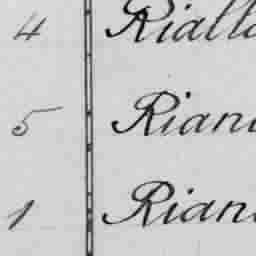 4 Riallo
5 Rian
1 Rian